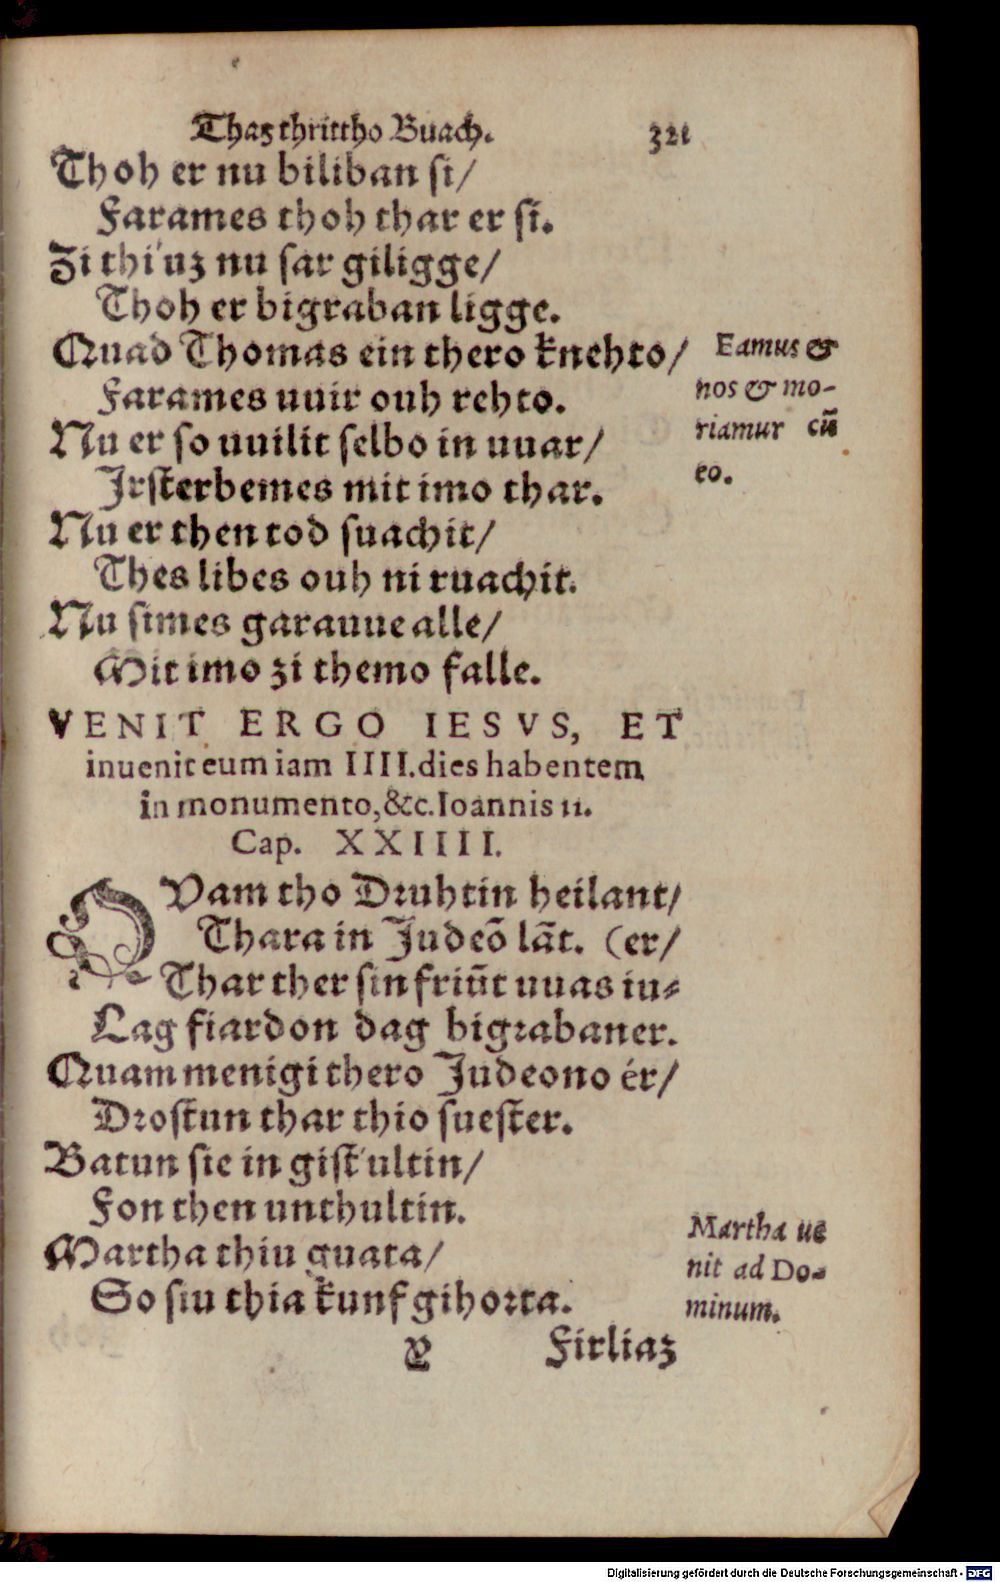 Thaz thrittho Buach. 321
Thoh er nu biliban si/
Farames thoh thar er si.
Zi thi'uz nu sar giligge/
Thoh er bigraban ligge.
Quad Thomas ein thero knehto/
Farames uuir ouh rehto.
Nu er so uuilit selbo in uuar/
Irsterbemes mit imo thar.
Nu er then tod suachit/
Thes libes ouh ni ruachit.
Nu simes garauue alle/
Mit imo zi themo falle.
Eamus &
nos & mo-
riamur cũ
eo.
VENIT ERGO IESVS, ET
inuenit eum iam IIII. dies habentem
in monumento, &c. Ioannis 11.
Cap. XXIIII.
QVam tho Druhtin heilant/
Thara in Judeõ lãt. (er/
Thar ther sin friũt uuas iu-
Lag fiardon dag bigrabaner.
Quam menigi thero Judeono ér/
Drostun thar thio suester.
Batun sie in gist'ultin/
Fon then unthultin.
Martha thiu guata/
So siu thia kunf gihorta.
Martha ue
nit ad Do-
minum.
Y Firliaz
Digitalisierung gefördert durch die Deutsche Forschungsgemeinschaft - DFG